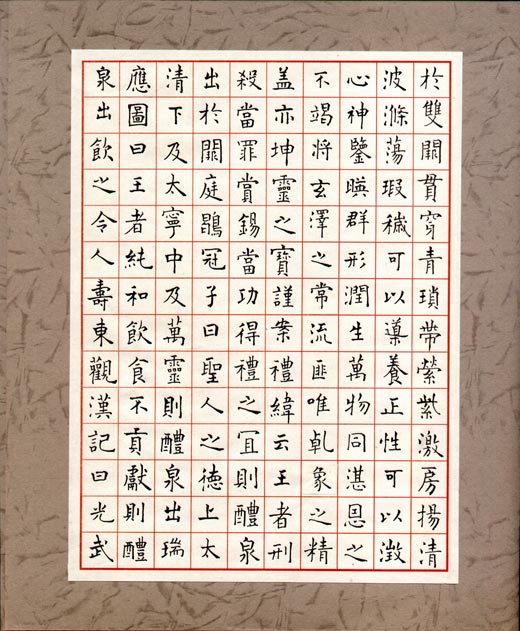 於雙闕貫穿青瑣帶縈紫激房揚清
波滌蕩瑕穢可以導養正性可以澂
心神鑒暎群形潤生萬物同湛恩之
不竭將玄澤之常流匪唯乹象之精
盖亦坤靈之寶謹案禮緯云王者刑
殺當罪賞錫當功得禮之冝則醴泉
出於闕庭鶡冠子曰聖人之德上太
清下及太寧中及萬靈則醴泉出瑞
應圖曰王者純和飲食不貢獻則醴
泉出飲之令人壽東觀漢記曰光武